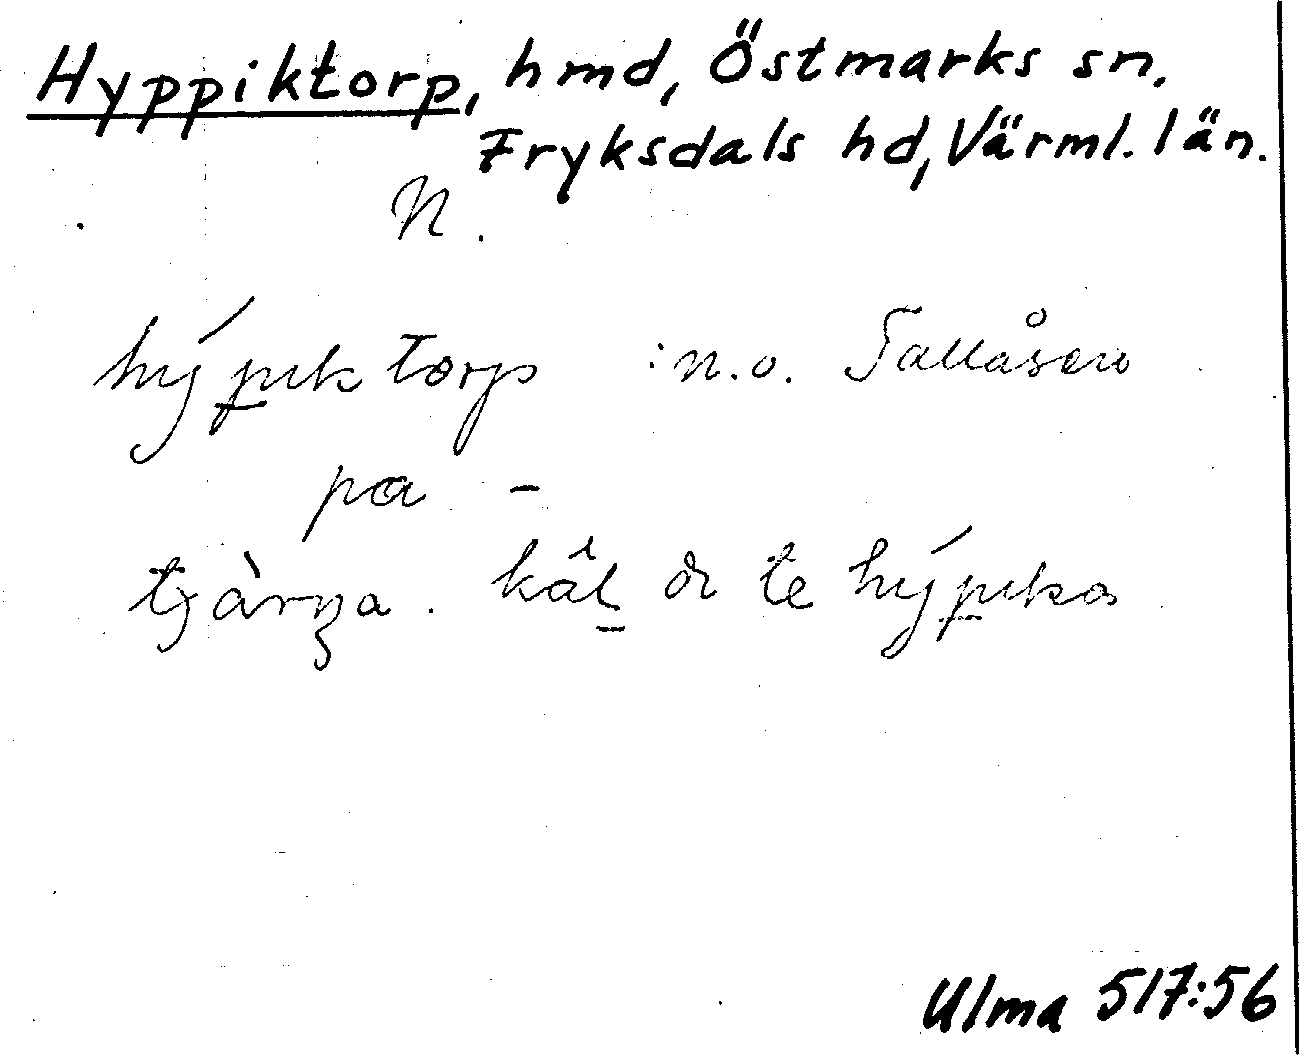 Hyppiktorp, hmd, Östmarks sn.
Fryksdals hd, Värml. län.
N.
hýpɪktorp : n.o. Tallåsen
pa –
tjàrŋa. kâl̠ ər te hýpɪka
Ulma 517:56